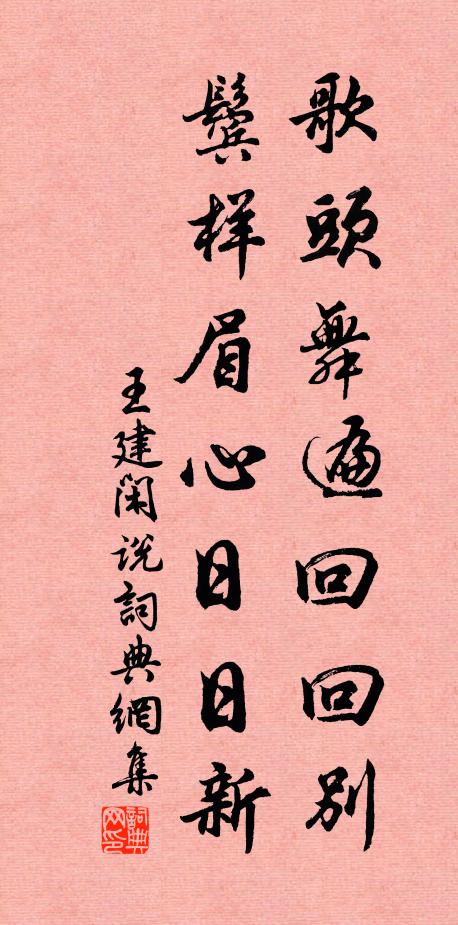 歌頭舞遍回回別
鬓样眉心日日新
王建閑说詞典網集
詞典网印